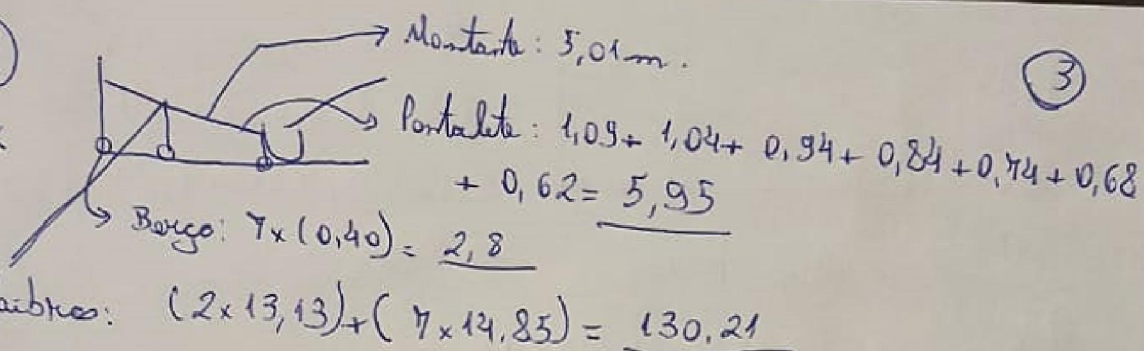 Montante: 5,01m.
3
Pontalete: 1,09+ 1,04+ 0,94+ 0,84+0,74+0,68
+ 0,62= 5,95
Berço: 7x(0,40)= 2,8
aibros: (2x13,13)+(7x14,85)= 130,21